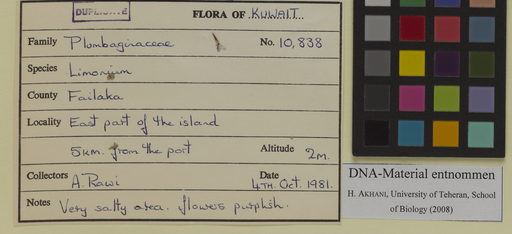 DUPLICATE
FLORA OF KUWAIT
Family Plombaginaceae No. 10,838
Species Limonium
County Failaka
Locality East part of the island
5km. from the port Altitude 2m.
Collectors A. Rawi Date 4TH. Oct. 1981.
Notes Very salty area. flowers purplish.
DNA-Material entnommen
H. AKHANI, University of Teheran, School
of Biology (2008)